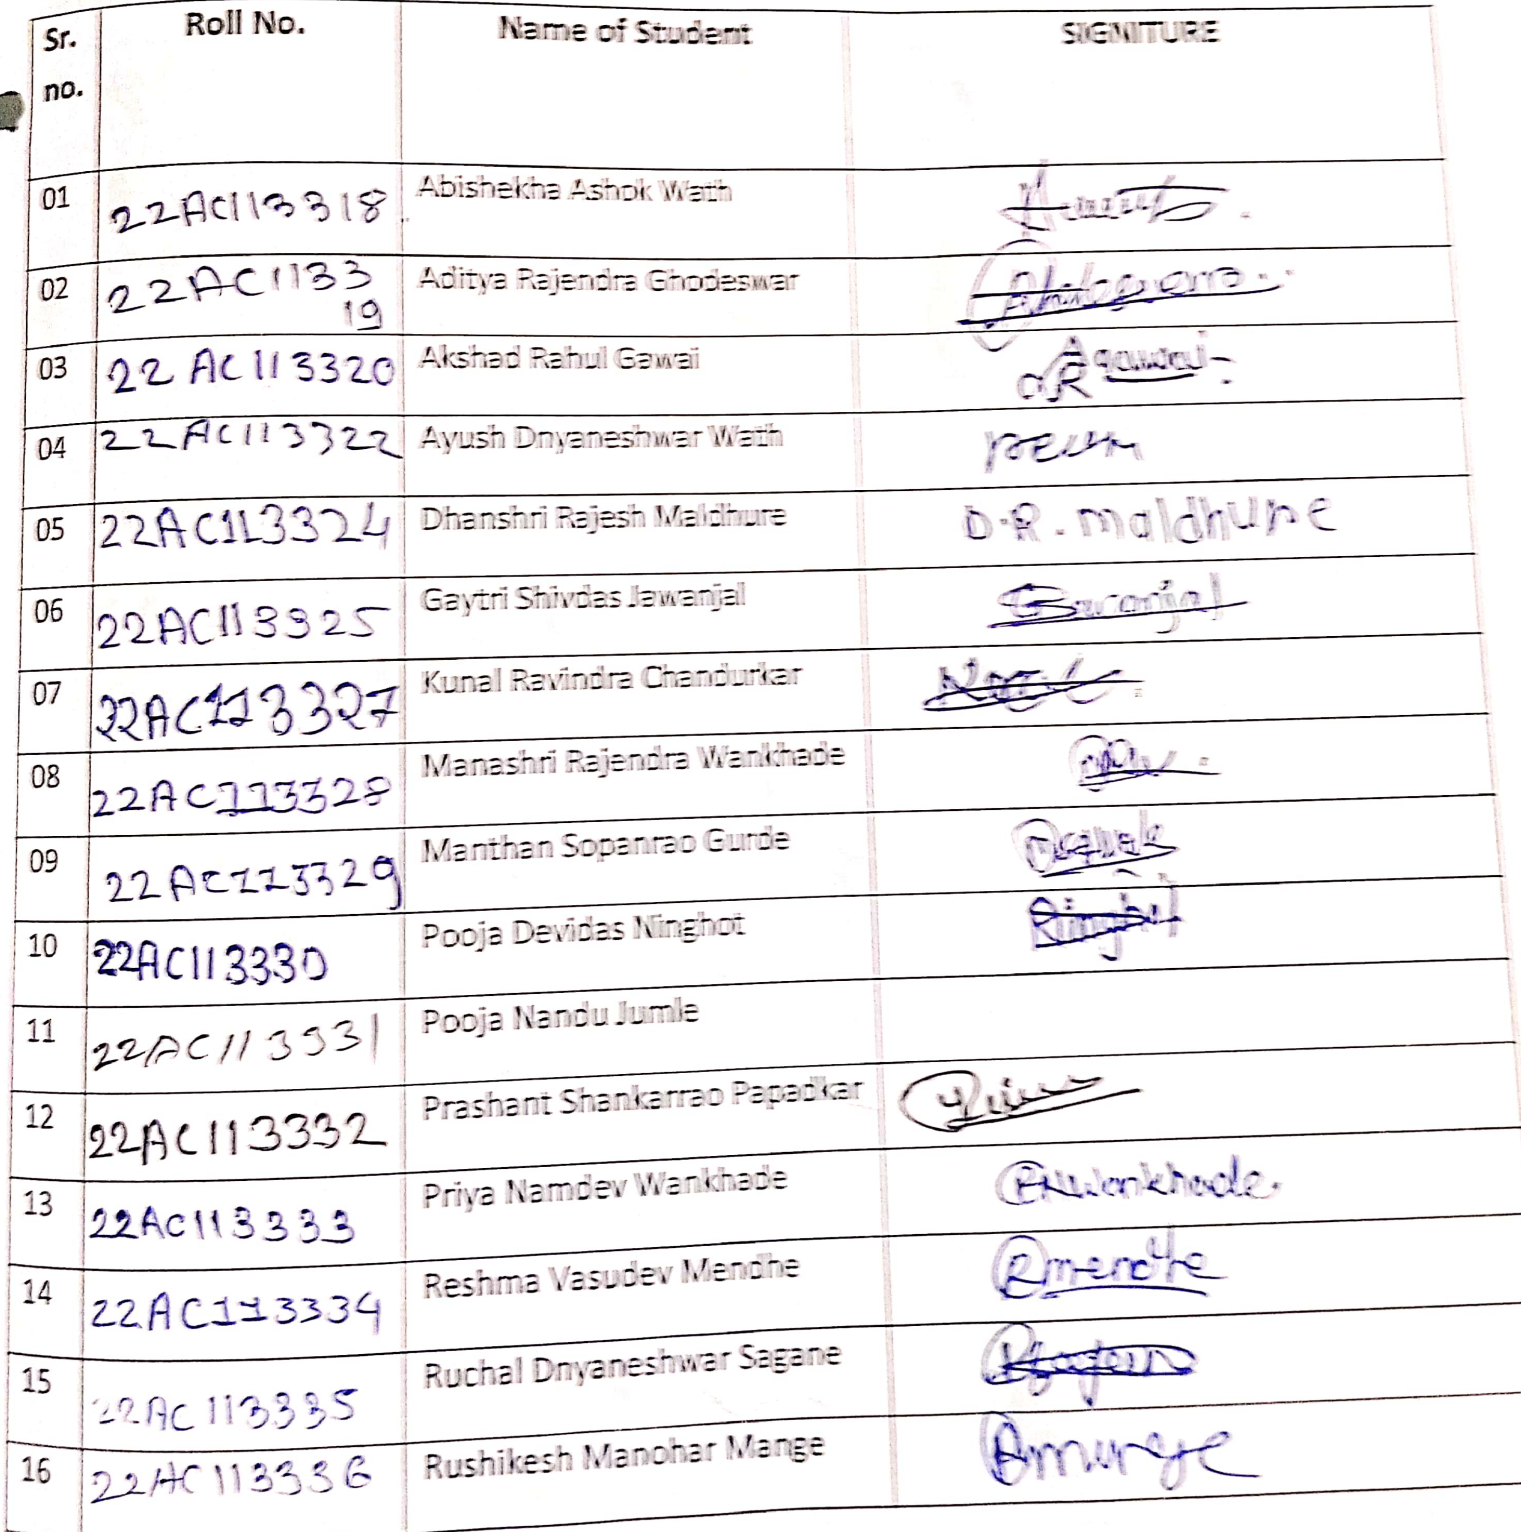 Sr. no. Roll No. Name of Student SIGNITURE
01 22AC113318 Abishekha Ashok Wath
02 22AC113319 Aditya Rajendra Ghodeswar
03 22AC113320 Akshad Rahul Gawai
04 22AC113322 Ayush Dnyaneshwar Wath
05 22AC113324 Dhanshri Rajesh Maldhure D.R. maldhure
06 22AC113325 Gaytri Shivdas Jawanjal
07 22AC113327 Kunal Ravindra Chandurkar
08 22AC113328 Manashri Rajendra Wankhade
09 22AC113329 Manthan Sopanrao Gurde
10 22AC113330 Pooja Devidas Ninghot
11 22AC113331 Pooja Nandu Jumle
12 22AC113332 Prashant Shankarrao Papadkar
13 22AC113333 Priya Namdev Wankhade PNWankhade.
14 22AC113334 Reshma Vasudev Mendhe Rmendhe
15 22AC113335 Ruchal Dnyaneshwar Sagane
16 22AC113336 Rushikesh Manohar Mange